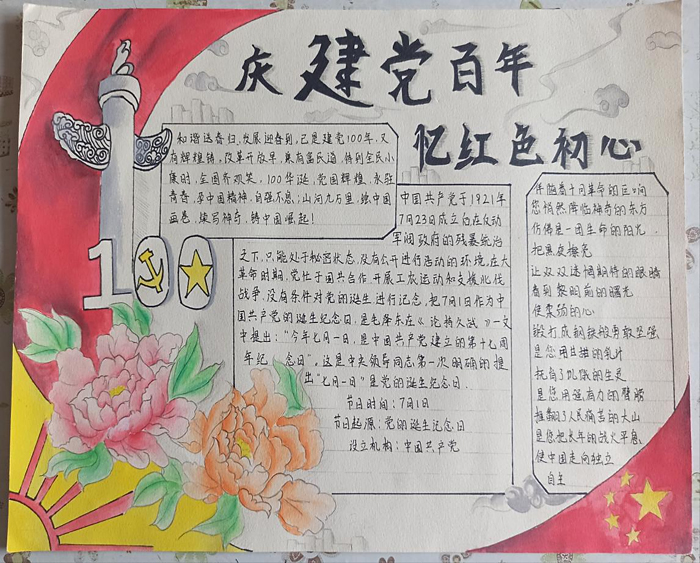 庆建党百年
忆红色初心
和谐送春归，发展迎春到，已是建党100年，又
有辉煌铸，改革开放早，亲有富民道，待到全民小
康时，全国齐欢笑，100华诞，党国辉煌，永驻
青春，承中国精神，自强不息；山河九万里，独中国
画卷，续写神奇，铸中国崛起！
100
中国共产党于1921年
7月23日成立后在反动
军阀政府的残暴统治
之下，只能处于秘密状态，没有公开进行活动的环境，在大
革命时期，党忙于国共合作、开展工农运动和支援北伐
战争，没有条件对党的诞生进行纪念，把7月1日作为中
国共产党的诞生纪念日，是毛泽东在《论持久战》一文
中提出："今年七月一日，是中国共产党建立的第十七周
年纪念日"。这是中央领导同志第一次明确的提
出"七月一日"是党的诞生纪念日。
节日时间：7月1日
节日起源：党的诞生纪念日
设立机构：中国共产党
伴随着十月革命的巨响
您悄然降临神奇的东方
仿佛是一团生命的阳光
把黑夜擦亮
让双双迷惘期待的眼睛
看到黎明前的曙光
使柔弱的心
锻打成钢铁般勇敢坚强
是您用甘甜的乳汁
抚育了饥饿的生灵
是您用强有力的臂膀
推翻了人民痛苦的大山
是您把长年的战火平息
使中国走向独立
自主